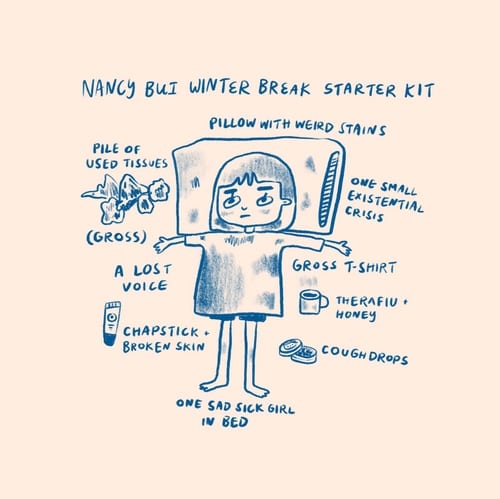 NANCY BUI WINTER BREAK STARTER KIT
PILLOW WITH WEIRD STAINS
PILE OF
USED TISSUES
(GROSS)
ONE SMALL
EXISTENTIAL
CRISIS
A LOST
VOICE
GROSS T-SHIRT
THERAFLU +
HONEY
CHAPSTICK +
BROKEN SKIN
COUGH DROPS
ONE SAD SICK GIRL
IN BED